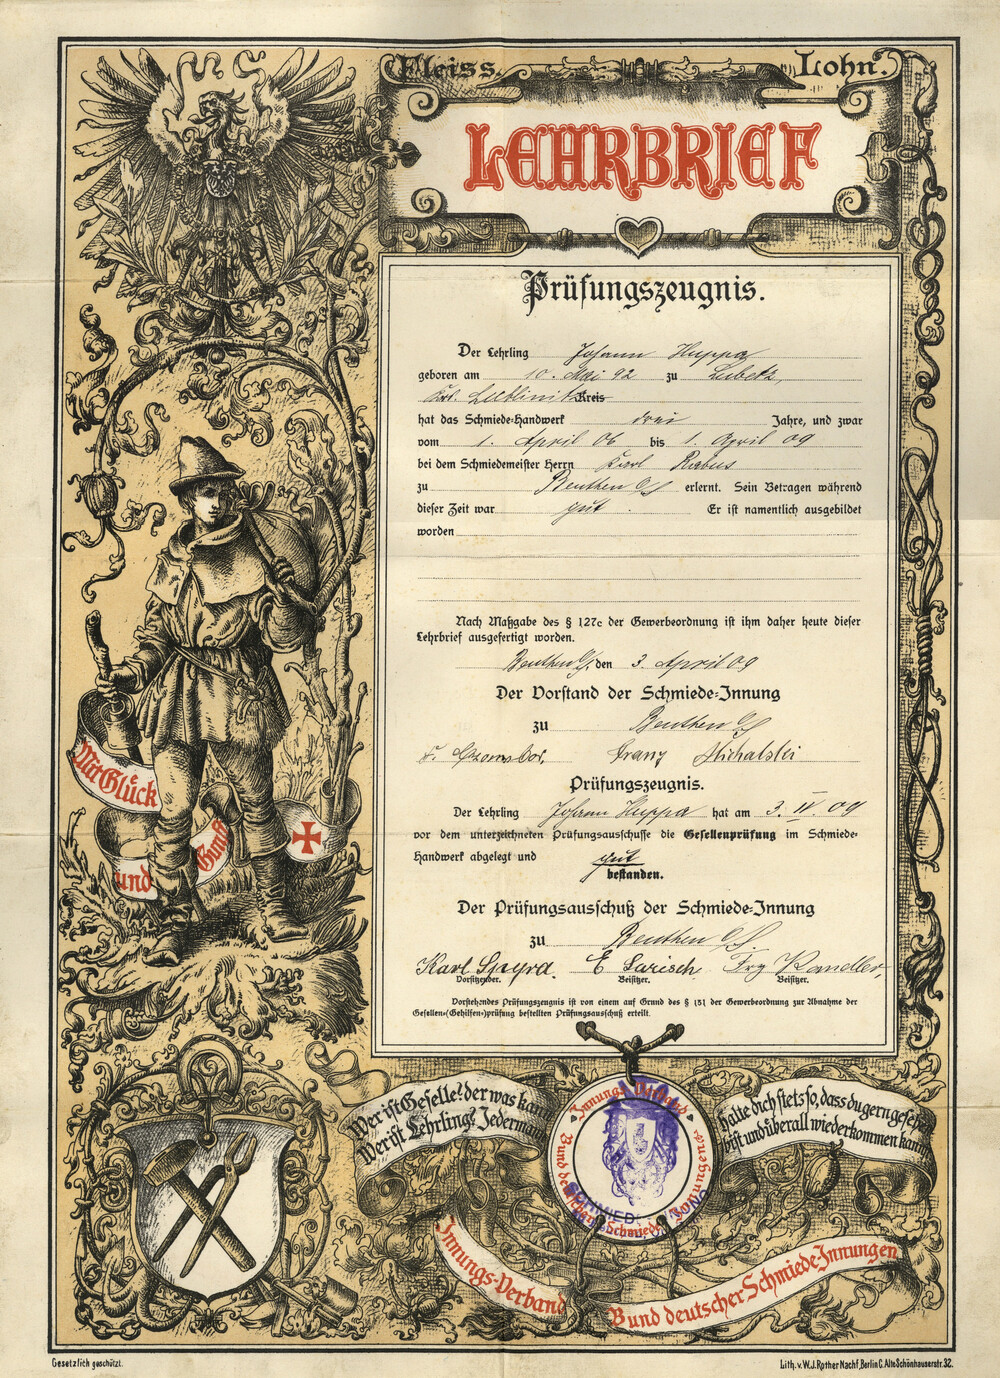 Fleiss. Lohn.
LEHRBRIEF
Prüfungszeugnis.
Der Lehrling Johann Huppa
geboren am 10. Mai 92 zu Lubetz,
Krs. Lublinitz Kreis
hat das Schmiede-Handwerk drei Jahre, und zwar
vom 1. April 06 bis 1. April 09
bei dem Schmiedemeister Herrn Karl Rabus
zu Beuthen O/S erlernt. Sein Betragen während
dieser Zeit war gut. Er ist namentlich ausgebildet
worden
Nach Maßgabe des § 127c der Gewerbeordnung ist ihm daher heute dieser
Lehrbrief ausgefertigt worden.
Beuthen O/S, den 3. April 09
Der Vorstand der Schmiede-Innung
zu Beuthen O/S
Franz Michalski
Prüfungszeugnis.
Der Lehrling Johann Huppa hat am 3. IV. 09
vor dem unterzeichneten Prüfungsausschusse die Gesellenprüfung im Schmiede-
Handwerk abgelegt und gut
bestanden.
Der Prüfungsausschuß der Schmiede-Innung
zu Beuthen O/S.
Karl E Larisch Frz Kandler
Vorsitzender. Beisitzer. Beisitzer.
Vorstehendes Prüfungszeugnis ist von einem auf Grund des § 131 der Gewerbeordnung zur Abnahme der
Gesellen-(Gehilfen-)prüfung bestellten Prüfungsausschuß erteilt.
Mit Glück
und Gunst
Wer ist Geselle? der was kann
Wer ist Lehrling? Jedermann
Innungs-Verband
Bund deutscher Schmiede-Innungen
halte dich stets so, dass du gern gesehen
bist und überall wiederkommen kannst
Innungs-Verband
Bund deutscher Schmiede-Innungen
Gesetzlich geschützt.
Lith. v. W. J. Rother Nachf, Berlin C. Alte Schönhauserstr. 32.